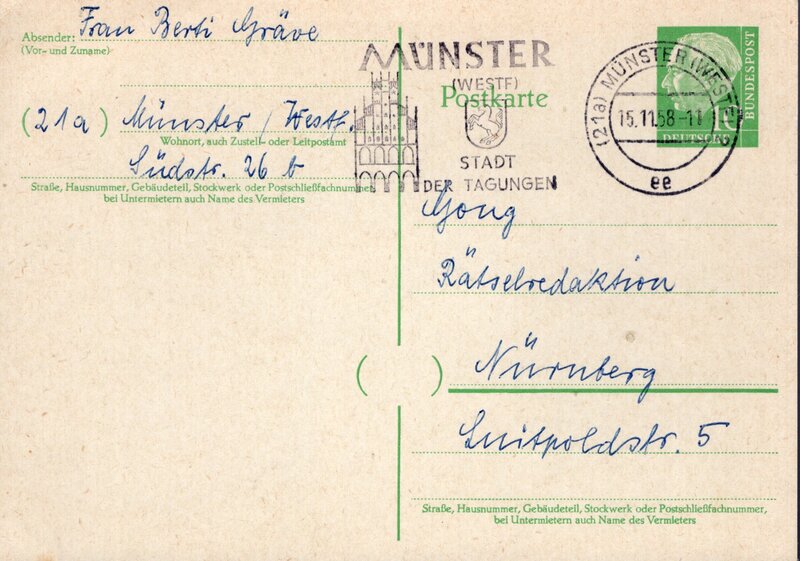 Absender: Frau Berti Gräve
(Vor- und Zuname)
(21a) Münster / Westf.
Wohnort, auch Zustell- oder Leitpostamt
Südstr. 26 b
Straße, Hausnummer, Gebäudeteil, Stockwerk oder Postschließfachnummer,
bei Untermietern auch Name des Vermieters
MÜNSTER
(WESTF)
STADT
DER TAGUNGEN
Postkarte
(21a) MÜNSTER (WESTF)
15.11.58-11
ee
10
DEUTSCHE
BUNDESPOST
Gong
Rätselredaktion
( )
Nürnberg
Luitpoldstr. 5
Straße, Hausnummer, Gebäudeteil, Stockwerk oder Postschließfachnummer,
bei Untermietern auch Name des Vermieters